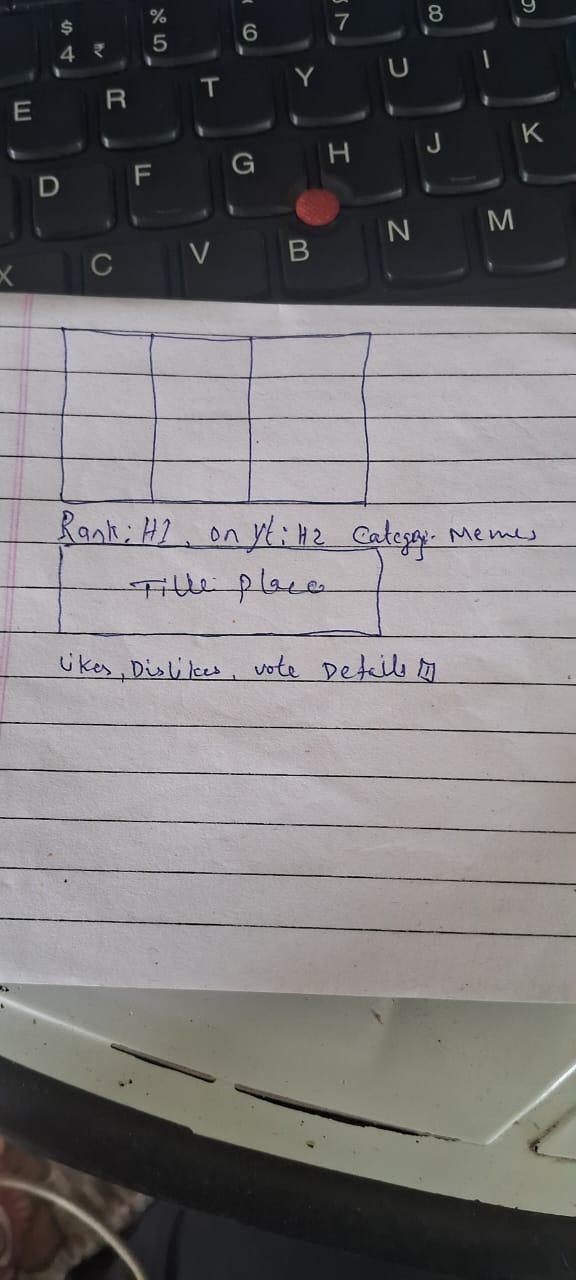 $ % 
4 ₹ 5 6 7 8 9
E R T Y U I
D F G H J K
X C V B N M
Rank: #1, on yt: #2 Categgy. Memes
Title place
Likes, Dislikes, vote Details